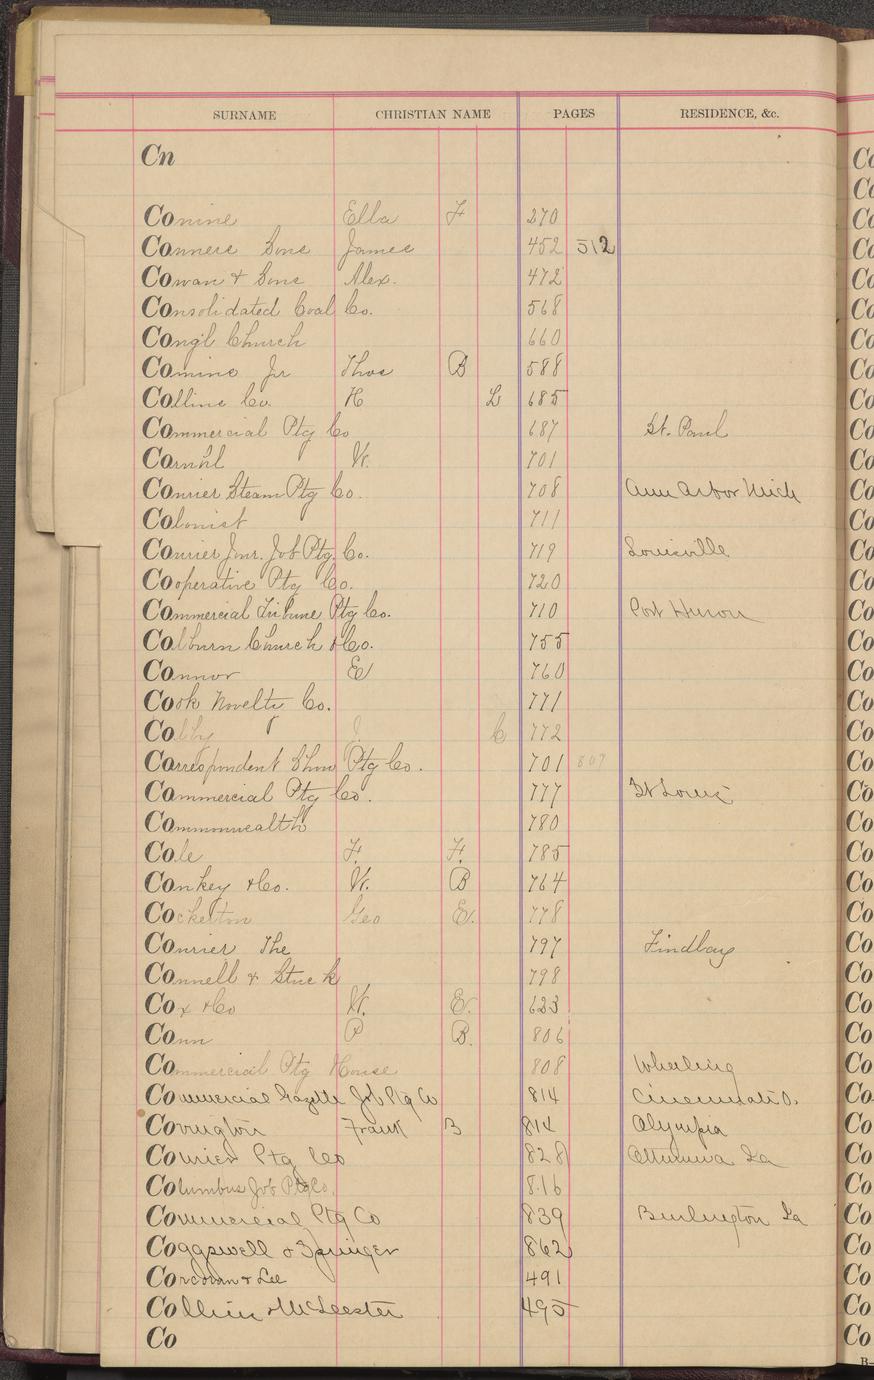 SURNAME CHRISTIAN NAME PAGES RESIDENCE, &c.
Cn
Conine Ella F 270
Conners Sons James 452 512
Cowan & Sons Alex. 472
Consolidated Coal Co. 568
Congl Church 660
Comins Jr Thos B 588
Collins Co. H L 685
Commercial Ptg Co 687 St. Paul
W. 701
Courier Steam Ptg Co. 708 Ann Arbor Mich
Colonist 711
Courier Jour. Job Ptg. Co. 719 Louisville
Cooperative Ptg Co. 720
Commercial Tribune Ptg Co. 710 Port Huron
Colburn Church & Co. 755
Connor E 760
Cook Novelty Co. 771
Colby J. C 772
Correspondent Show Ptg Co. 701 807
Commercial Ptg Co. 777 St Louis
Commonwealth 780
Cole F. F. 785
Conkey & Co. W. B 764
Cockerton Geo E. 778
Courier The 797 Findlay
Connell & Stuck 798
Cox & Co W. E. 623
Conn P B. 806
Commercial Ptg House 808 Wheeling
Commercial Gazette Job Ptg Co 814 Cincinnati O.
Covington Frank B 814 Olympia
Courier Ptg Co 828 Ottumwa Ia
Columbus Job Ptg Co. 816
Commercial Ptg Co 839 Burlington Ia
Coggswell & Springer 862
Corcoran & Lee 491
Collins & McLeester 495
Co
B—